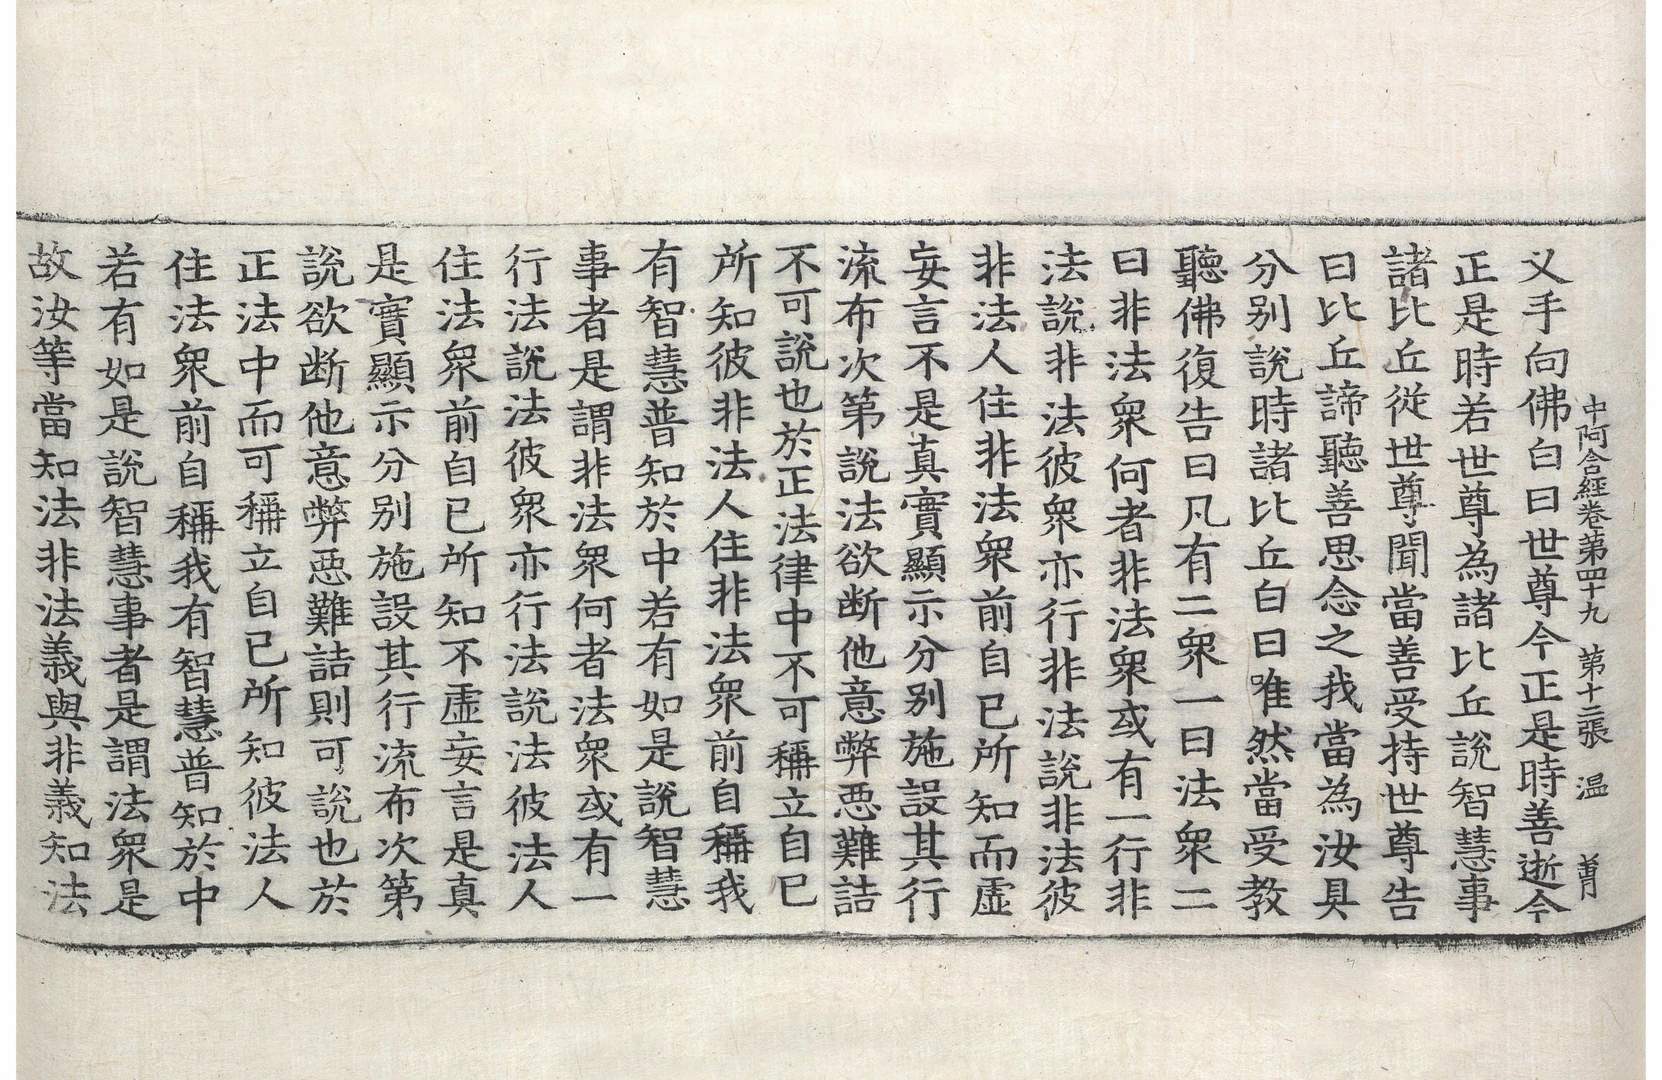 中阿含經卷第四十九 第十二張 温
叉手向佛白曰世尊今正是時善逝今
正是時若世尊為諸比丘說智慧事
諸比丘從世尊聞當善受持世尊告
曰比丘諦聽善思念之我當為汝具
分別說時諸比丘白曰唯然當受教
聽佛復告曰凡有二衆一曰法衆二
曰非法衆何者非法衆或有一行非
法說非法彼衆亦行非法說非法彼
非法人住非法衆前自已所知而虛
妄言不是真實顯示分別施設其行
流布次第說法欲断他意弊惡難詰
不可說也於正法律中不可稱立自已
所知彼非法人住非法衆前自稱我
有智慧普知於中若有如是說智慧
事者是謂非法衆何者法衆或有一
行法說法彼衆亦行法說法彼法人
住法衆前自已所知不虛妄言是真
是實顯示分別施設其行流布次第
說欲断他意弊惡難詰則可說也於
正法中而可稱立自已所知彼法人
住法衆前自稱我有智慧普知於中
若有如是說智慧事者是謂法衆是
故汝等當知法非法義與非義知法